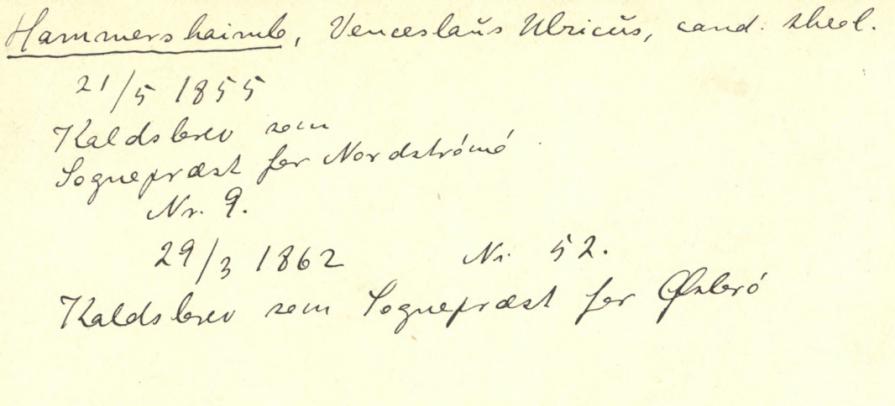 Hammershaimb, Venceslaŭs Ulricŭs, cand. theol.
21/5 1855
Kaldsbrev som
Sognepræst for Nordströmö
Nr. 9.
29/3 1862 Nr. 52.
Kaldsbrev som Sognepræst for Østerö